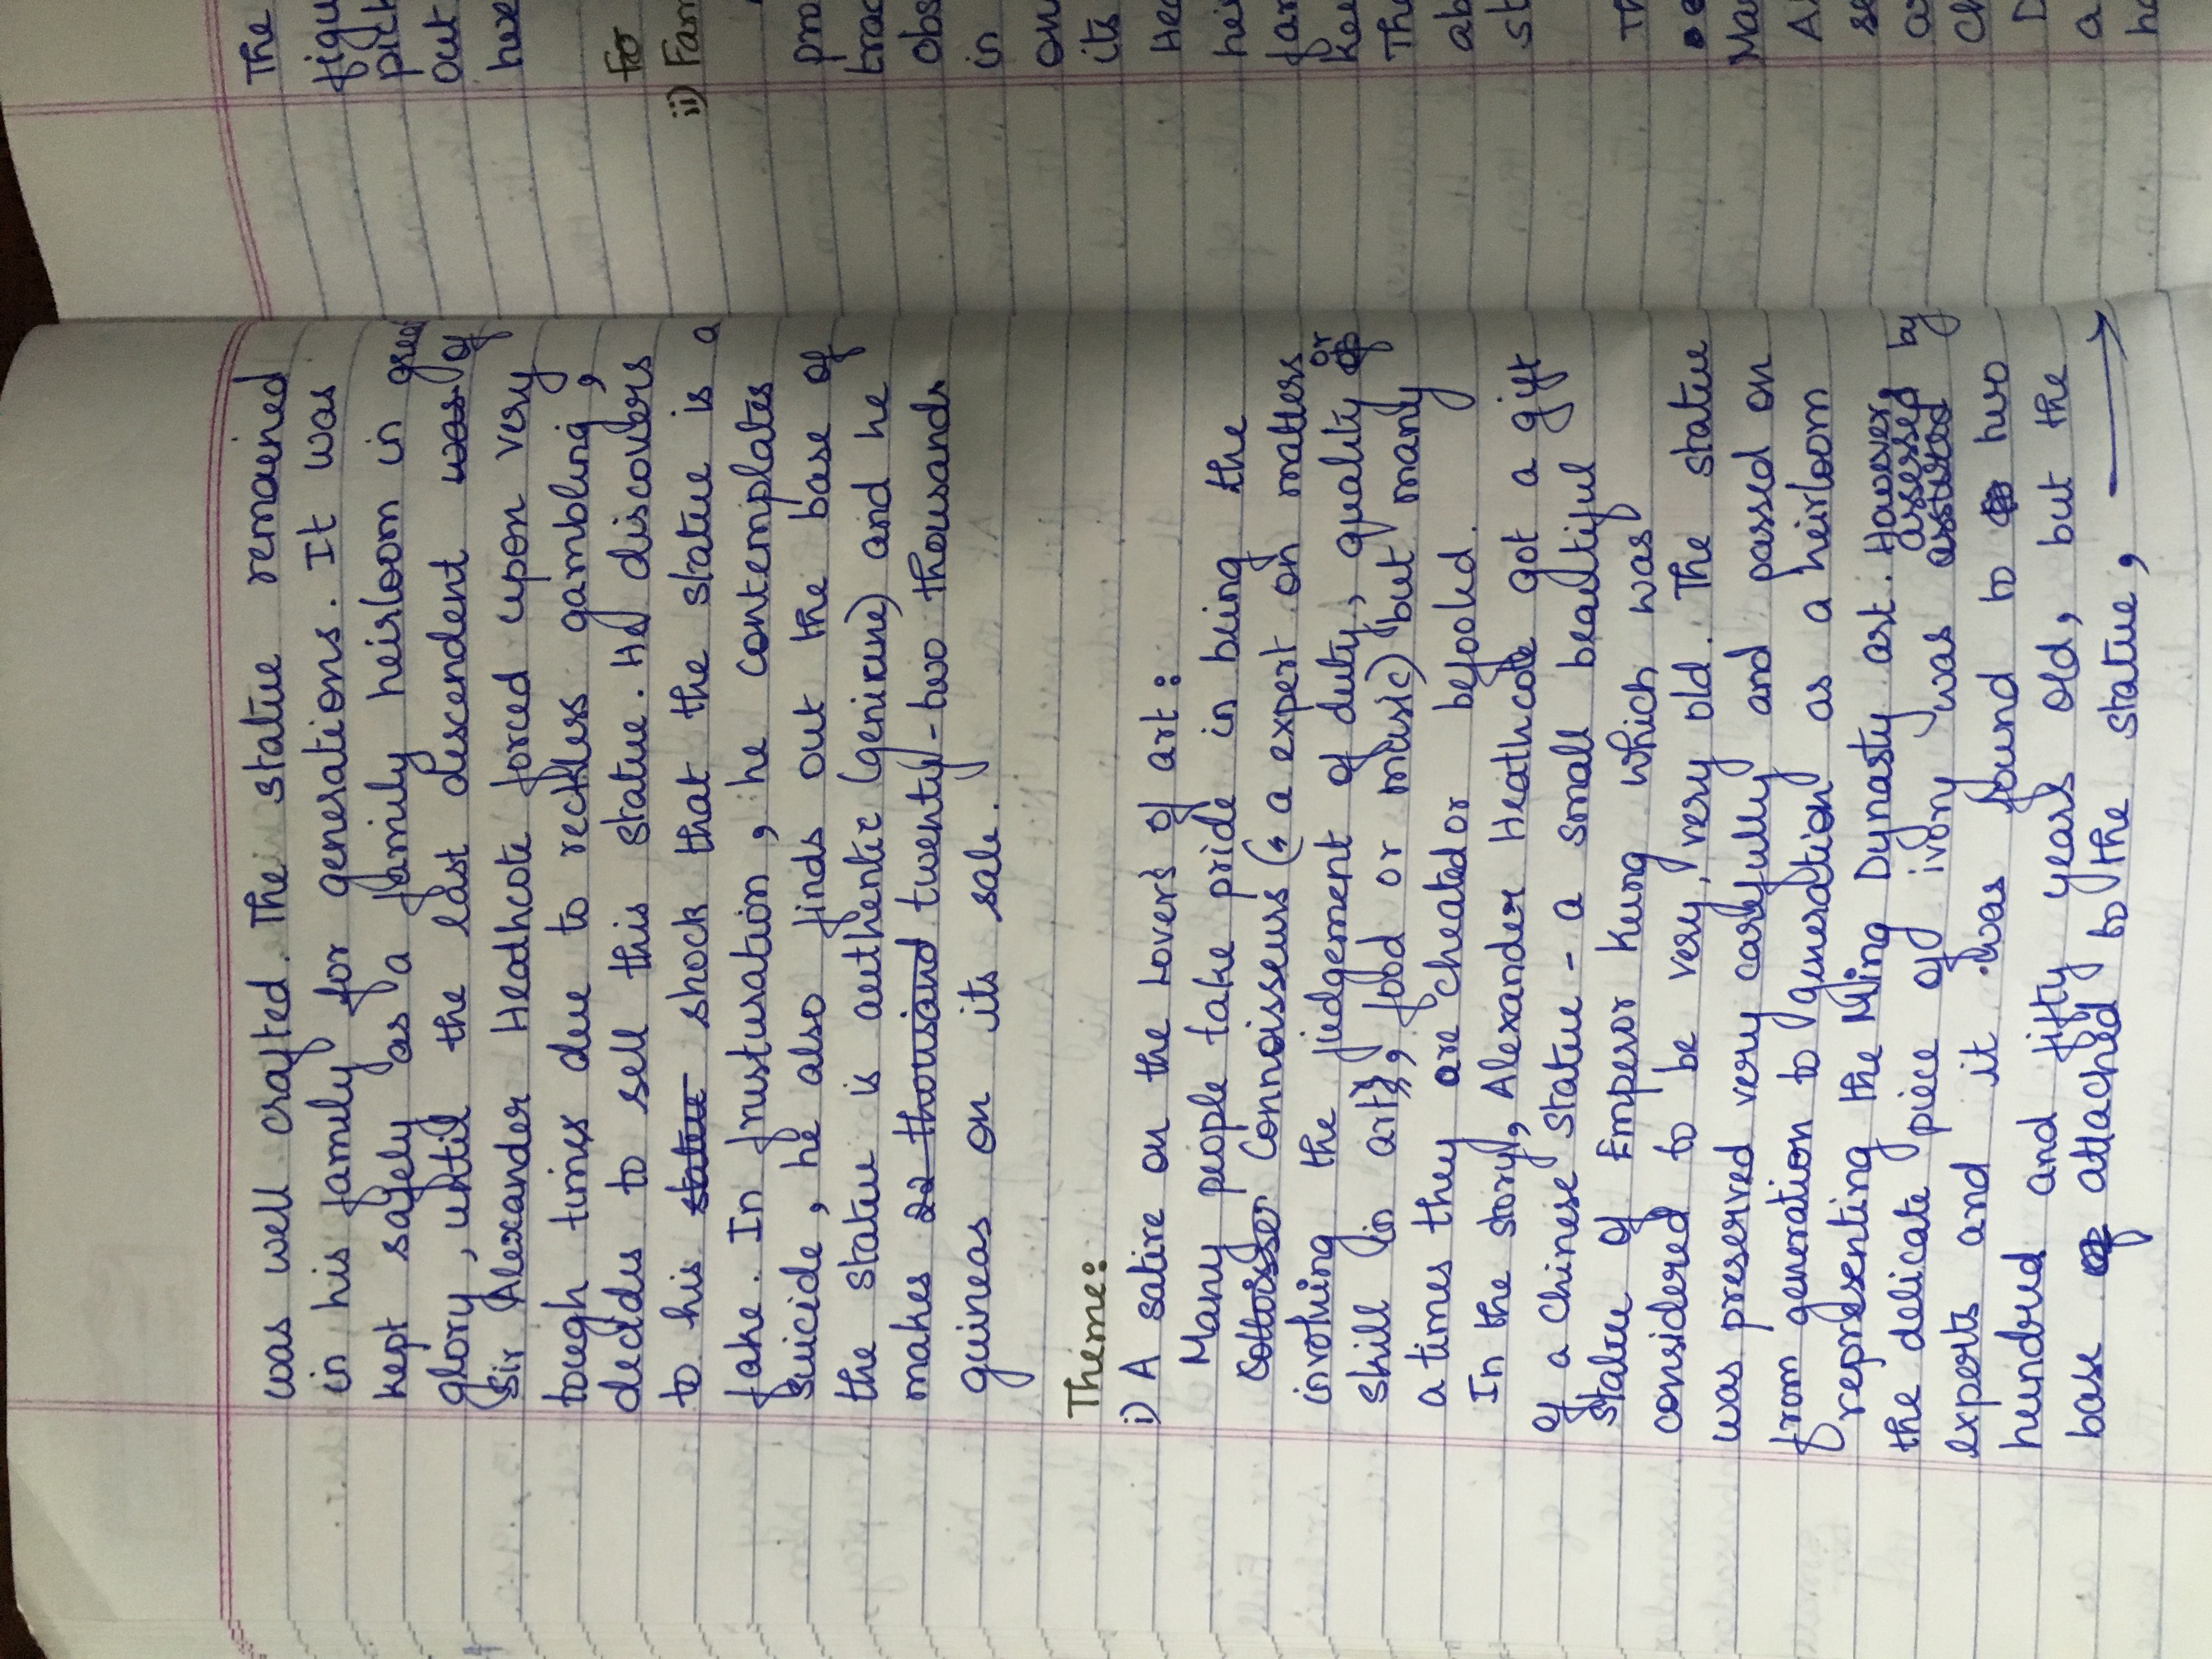 was well crafted. The statue remained
in his family for generations. It was
kept safely as a family heirloom in great
glory, until the last descendent was of
Sir Alexander Heathcote forced upon very
tough times due to reckless gambling,
decides to sell this statue. He discovers
to his statue shock that the statue is a
fake. In frusturation, he contemplates
suicide, he also finds out the base of
the statue is authentic (geniuine) and he
makes 22 thousand twenty-two thousands
guineas on its sale.
Theme:
i) A satire on the Lover's of art:
Many people take pride in being the
Connoisseurs (a expert on matters
involving the judgement of duty, quality or
skill in art, food or music) but many
a times they are cheated or befooled.
In the story, Alexander Heathcote got a gift
of a Chinese Statue - a small beautiful
statue of Emperor Kung which was
considered to be very, very old. The statue
was preserved very carefully and passed on
from generation to generation as a heirloom
representing the Ming Dynasty art. However,
the delicate piece of ivory was assessed by
experts and it was found to two
hundred and fifty years old, but the
base of attached to the statue, →
The
figu
pick
out
For
ii) Fam
pro
trad
obs
in
on
its
Hea
hei
far
kee
The
ab
st
Th
Ma
A
se
a
Ch
D
a
ha